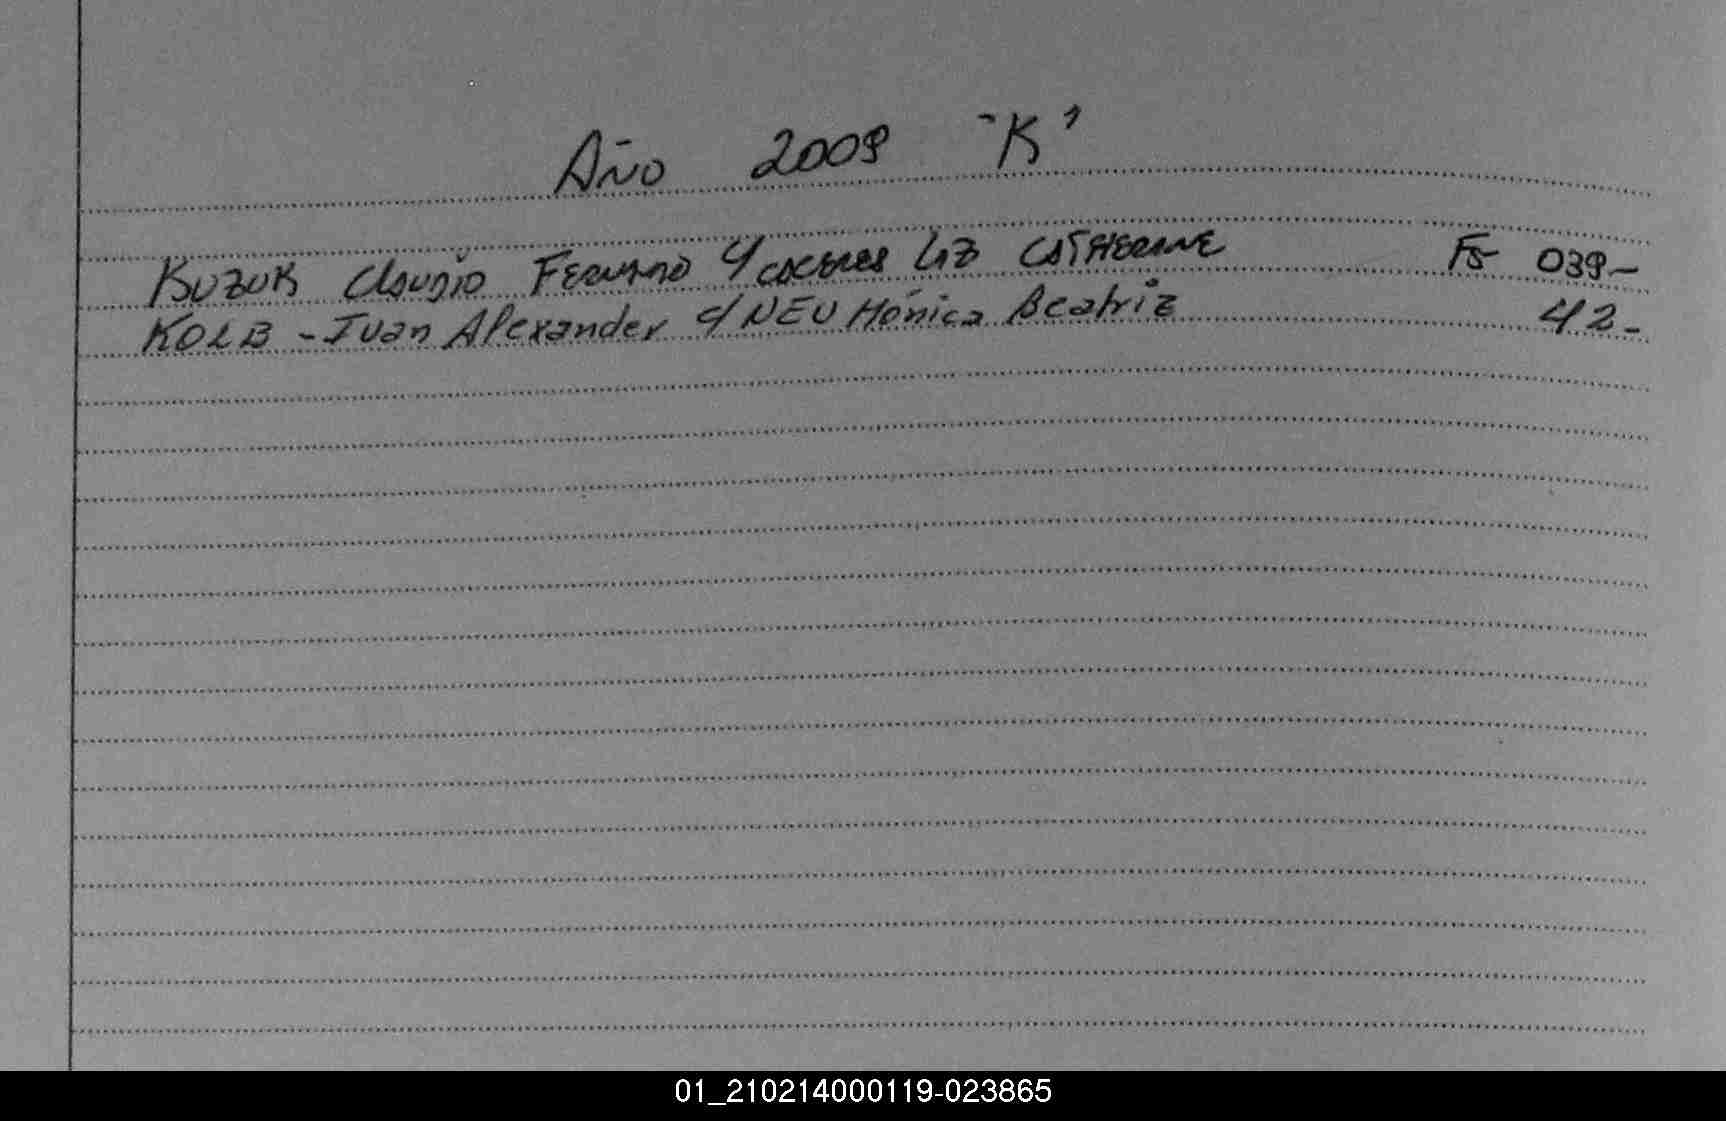 Año 2009 "K"
KUZUK Claudio Fernando Y CACERES LIZ CATHERINE Fs 039-
KOLB - Ivan Alexander c/ NEU Mónica Beatriz 42-
01_210214000119-023865